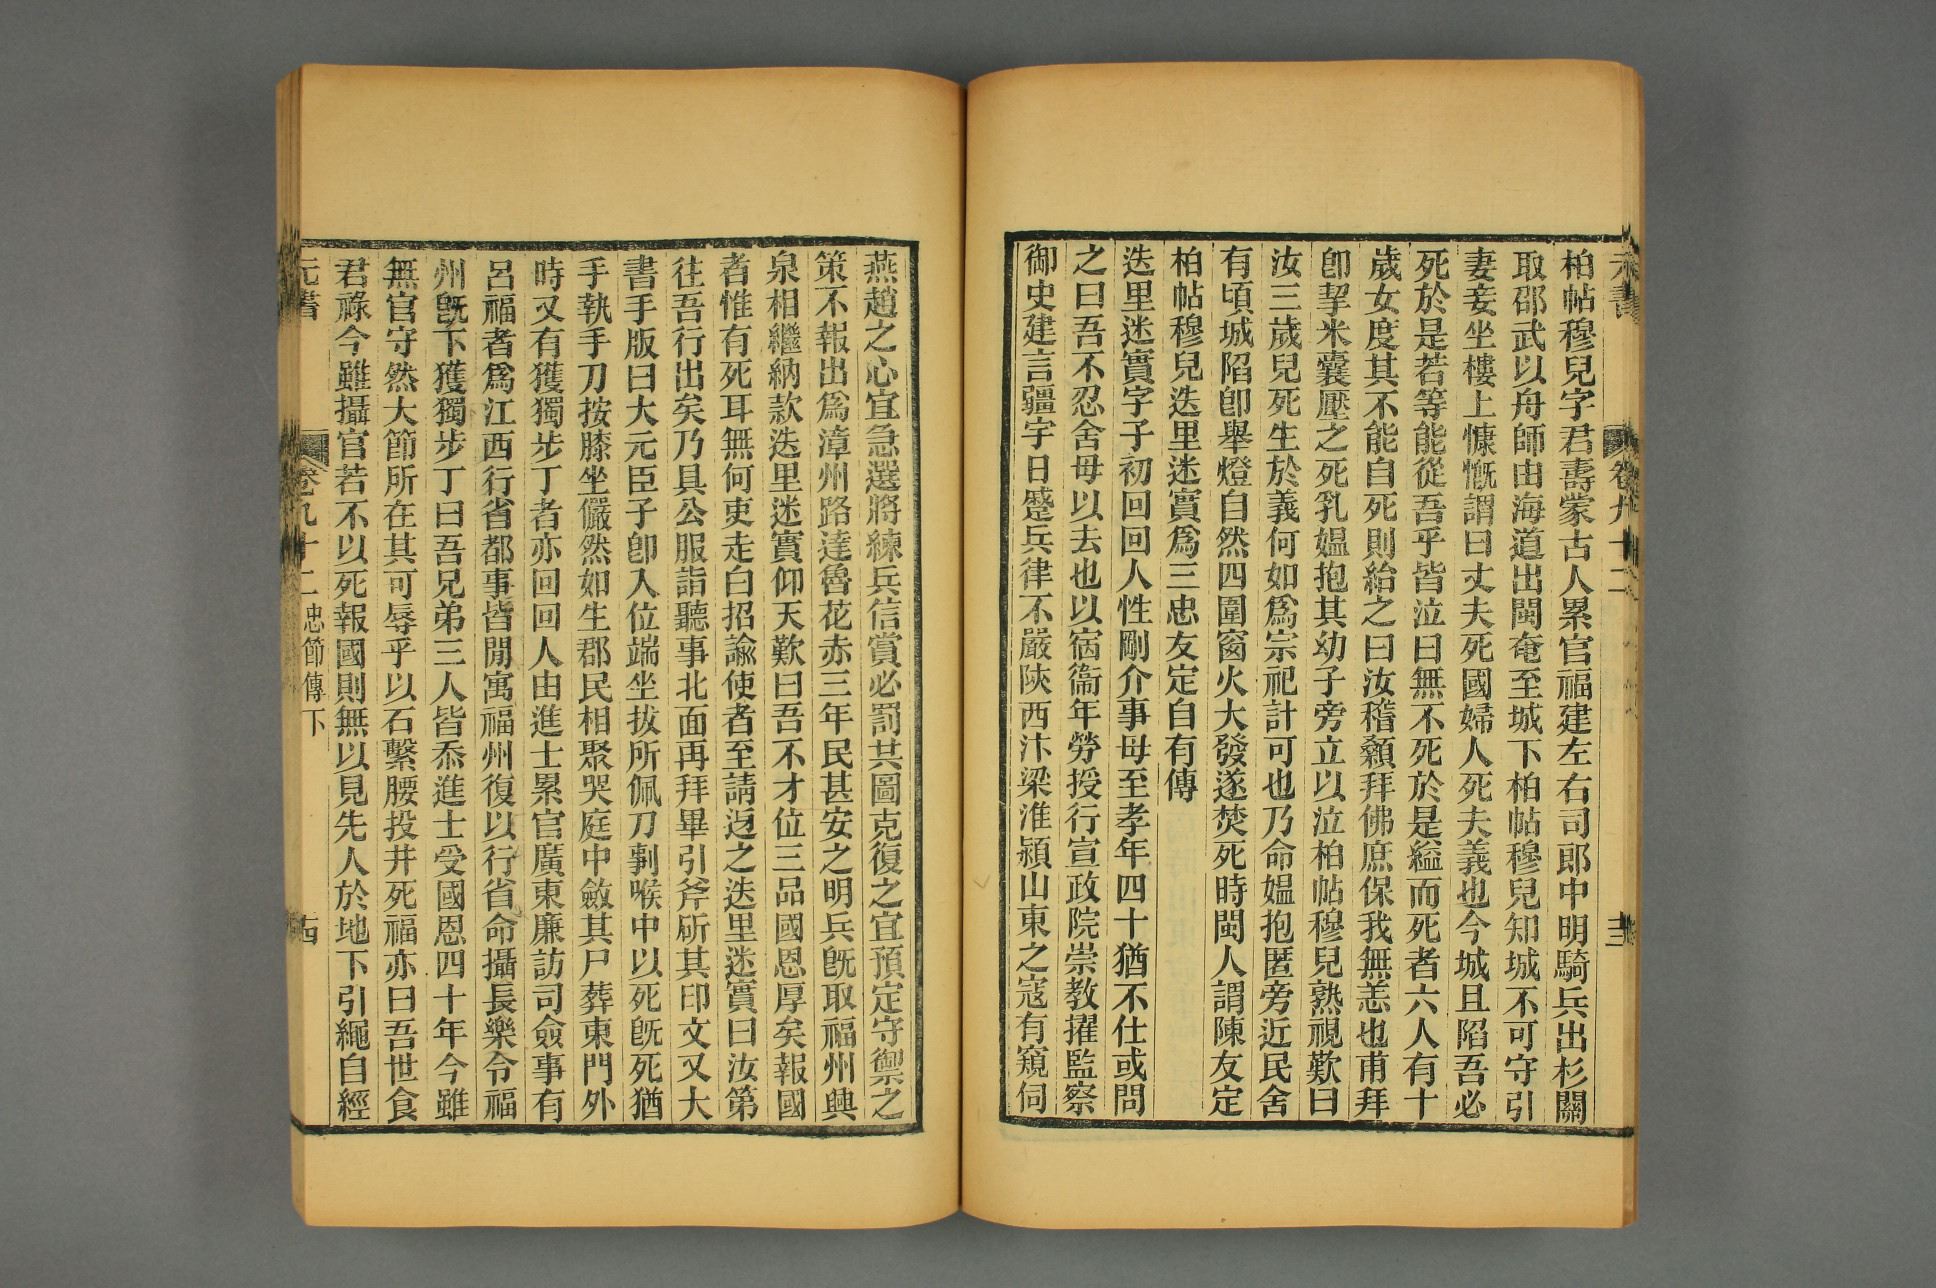 元書 卷九十二 十三
柏帖穆兒字君壽蒙古人累官福建左右司郎中明騎兵出杉關
取邵武以舟師由海道出閩奄至城下柏帖穆兒知城不可守引
妻妾坐樓上慷慨謂曰丈夫死國婦人死夫義也今城且陷吾必
死於是若等能從吾乎皆泣曰無不死於是縊而死者六人有十
歲女度其不能自死則紿之曰汝稽顙拜佛庶保我無恙也甫拜
卽挈米囊壓之死乳媪抱其幼子旁立以泣柏帖穆兒熟視歎曰
汝三歲兒死生於義何如爲宗祀計可也乃命媪抱匿旁近民舍
有頃城陷卽舉燈自然四圍窗火大發遂焚死時閩人謂陳友定
柏帖穆兒迭里迷實爲三忠友定自有傳
迭里迷實字子初回回人性剛介事母至孝年四十猶不仕或問
之曰吾不忍舍母以去也以宿衞年勞授行宣政院崇教擢監察
御史建言疆宇日蹙兵律不嚴陝西汴梁淮潁山東之寇有窺伺
燕趙之心宜急選將練兵信賞必罰共圖克復之宜預定守禦之
策不報出爲漳州路達魯花赤三年民甚安之明兵旣取福州興
泉相繼納款迭里迷實仰天歎曰吾不才位三品國恩厚矣報國
者惟有死耳無何吏走白招諭使者至請迓之迭里迷實曰汝第
往吾行出矣乃具公服詣聽事北面再拜畢引斧斫其印文又大
書手版曰大元臣子卽入位端坐拔所佩刀剚喉中以死旣死猶
手執手刀按膝坐儼然如生郡民相聚哭庭中斂其尸葬東門外
時又有獲獨步丁者亦回回人由進士累官廣東廉訪司僉事有
呂福者爲江西行省都事皆閒寓福州復以行省命攝長樂令福
州旣下獲獨步丁曰吾兄弟三人皆忝進士受國恩四十年今雖
無官守然大節所在其可辱乎以石繫腰投井死福亦曰吾世食
君祿今雖攝官若不以死報國則無以見先人於地下引繩自經
元書 卷九十二 忠節傳下 十四